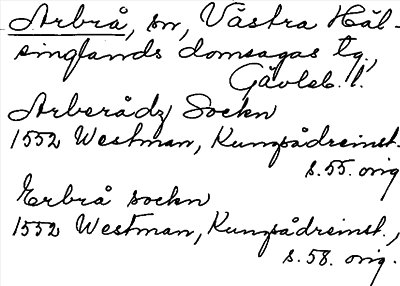 Arbrå, sn, Västra Häl-
singlands domsagas tg.,
Gävleb. l.
Arberådz Sockn
1552 Westman, Kungsådreinst.
s. 55. orig
Erbrå sockn
1552 Westman, Kungsådreinst.,
s. 58. orig.